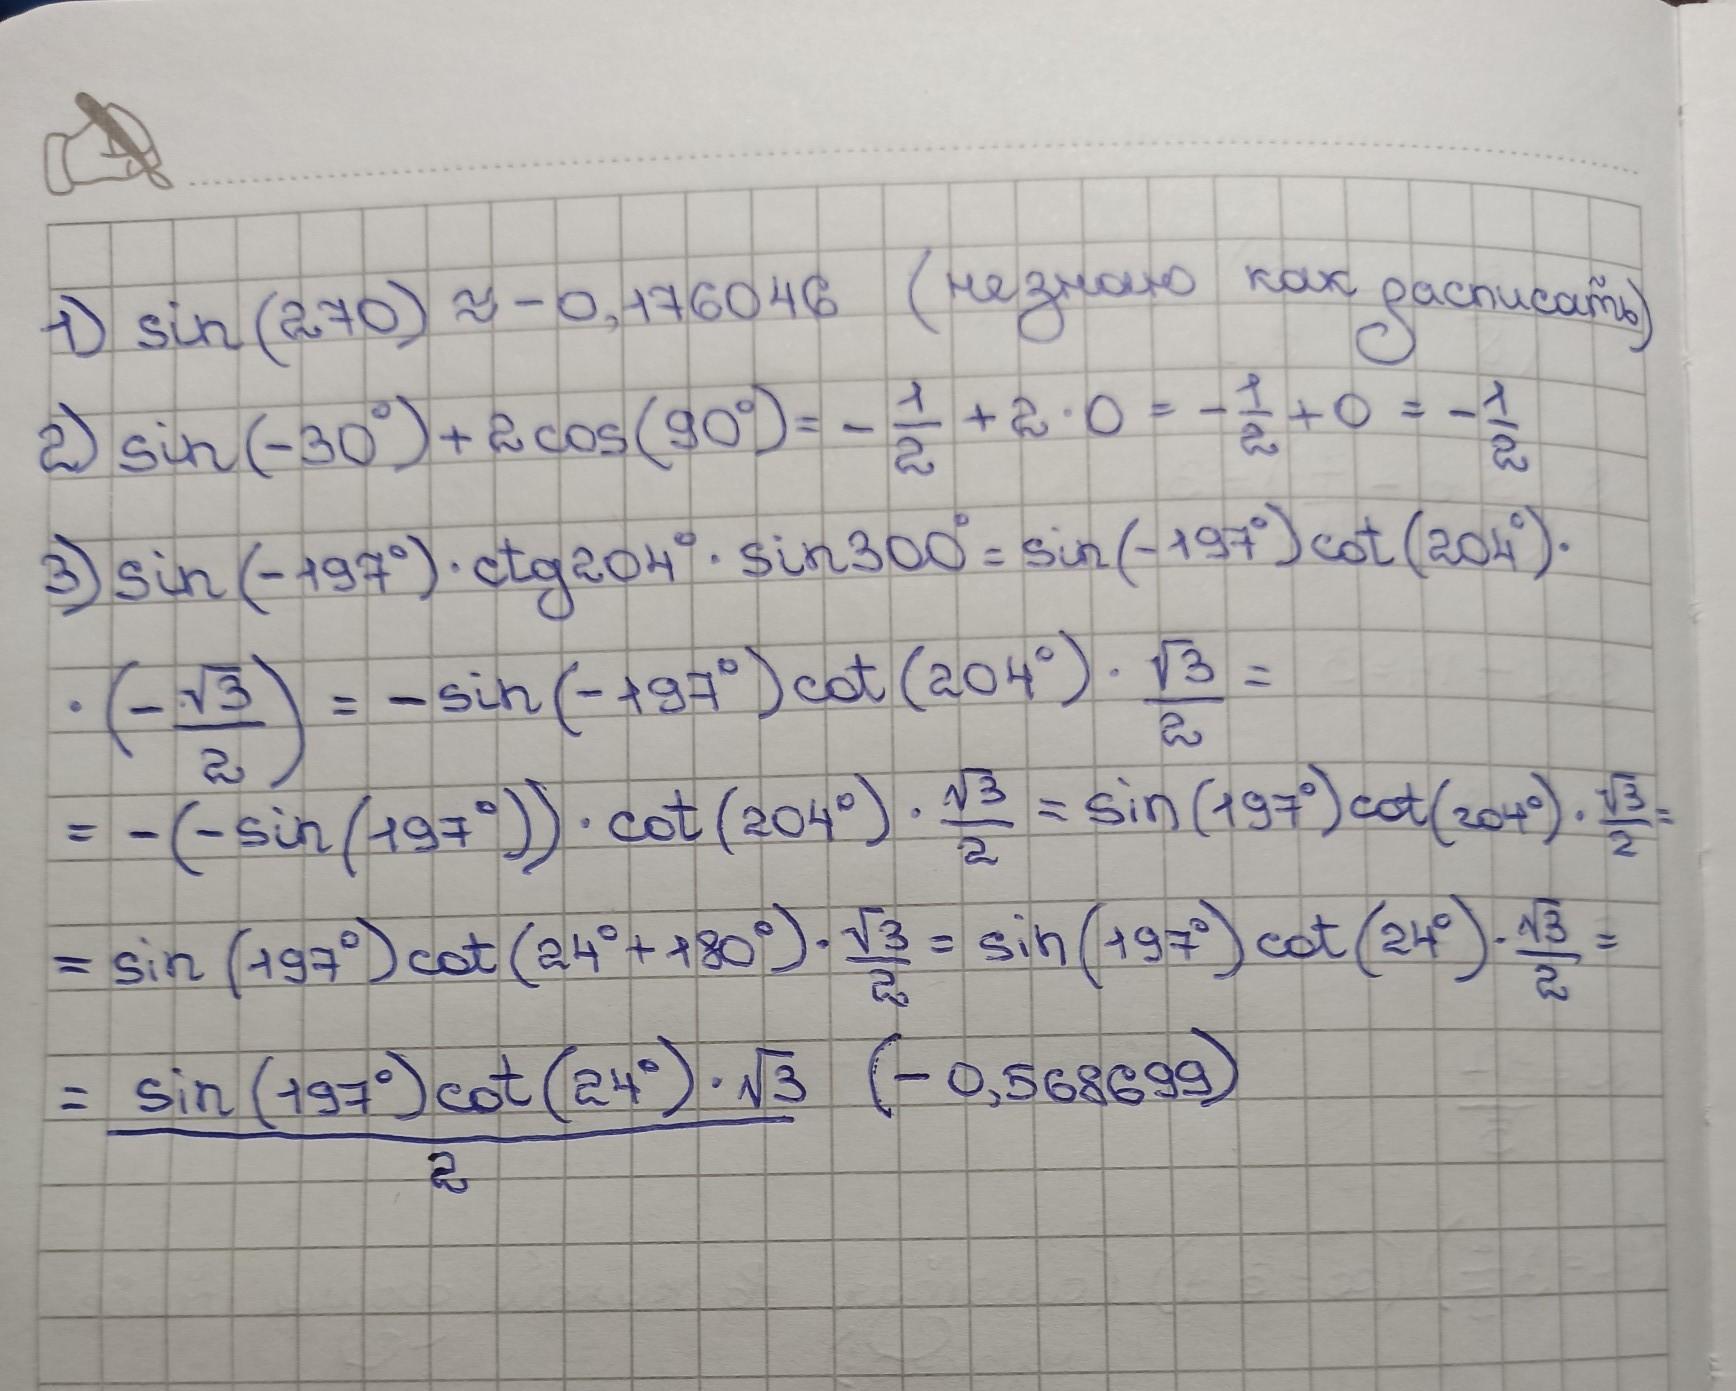 1) sin(270) ≈ -0,176046 (не знаю как расписать)
2) sin(-30°)+2cos(90°)= -1/2 + 2·0 = -1/2 + 0 = -1/2
3) sin(-197°)·ctg204°·sin300° = sin(-197°)cot(204°)·
·(-√3/2) = -sin(-197°)cot(204°)·√3/2 =
= -(-sin(197°))·cot(204°)·√3/2 = sin(197°)cot(204°)·√3/2 =
= sin(197°)cot(24°+180°)·√3/2 = sin(197°)cot(24°)·√3/2 =
= sin(197°)cot(24°)·√3/2 (-0,568699)